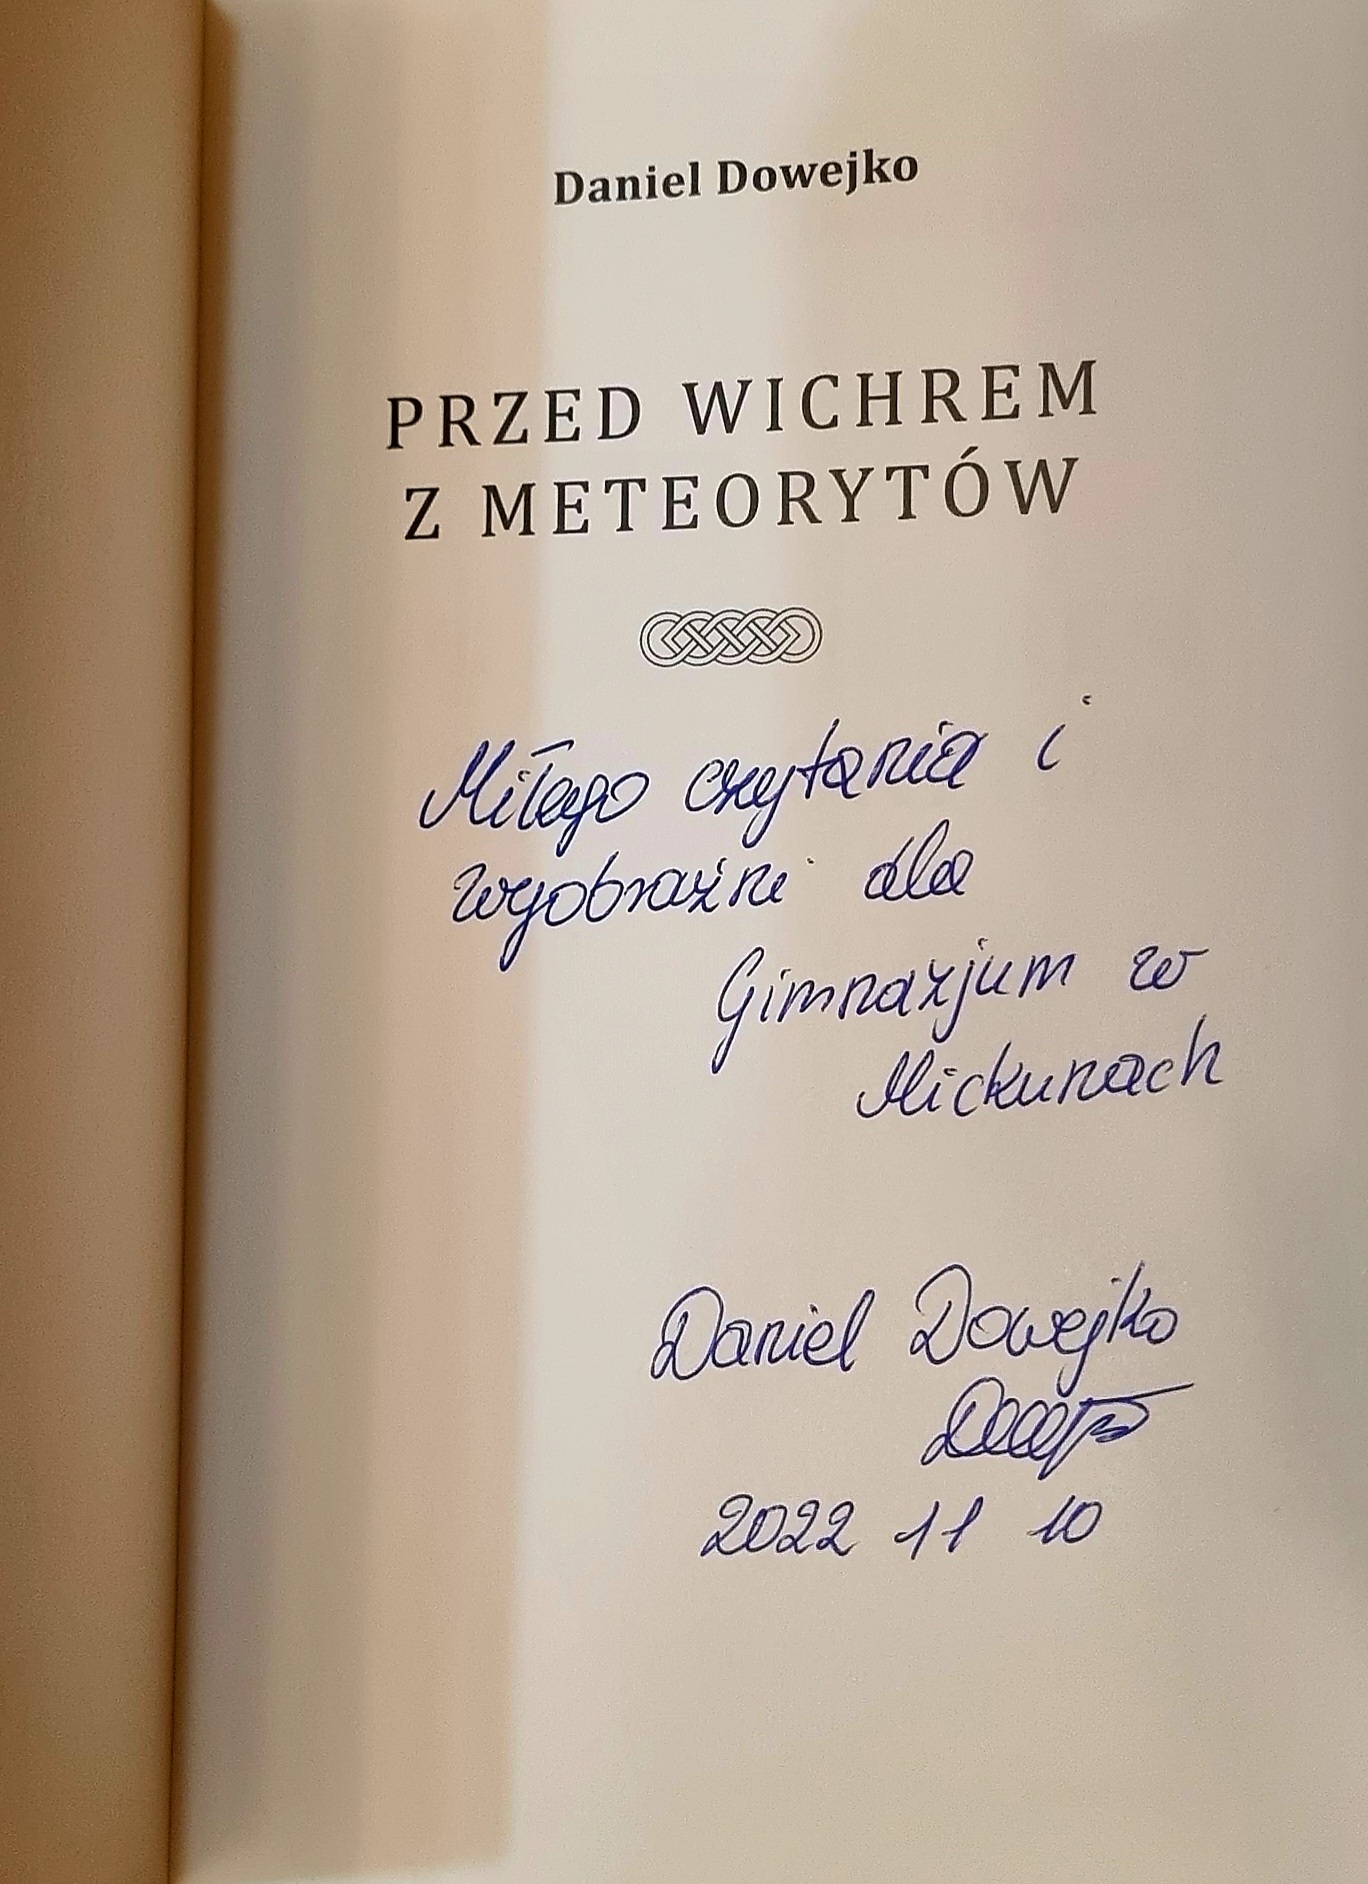 Daniel Dowejko
PRZED WICHREM
Z METEORYTÓW
Miłego czytania i
wyobraźni dla
Gimnazjum w
Mickunach
Daniel Dowejko
2022 11 10